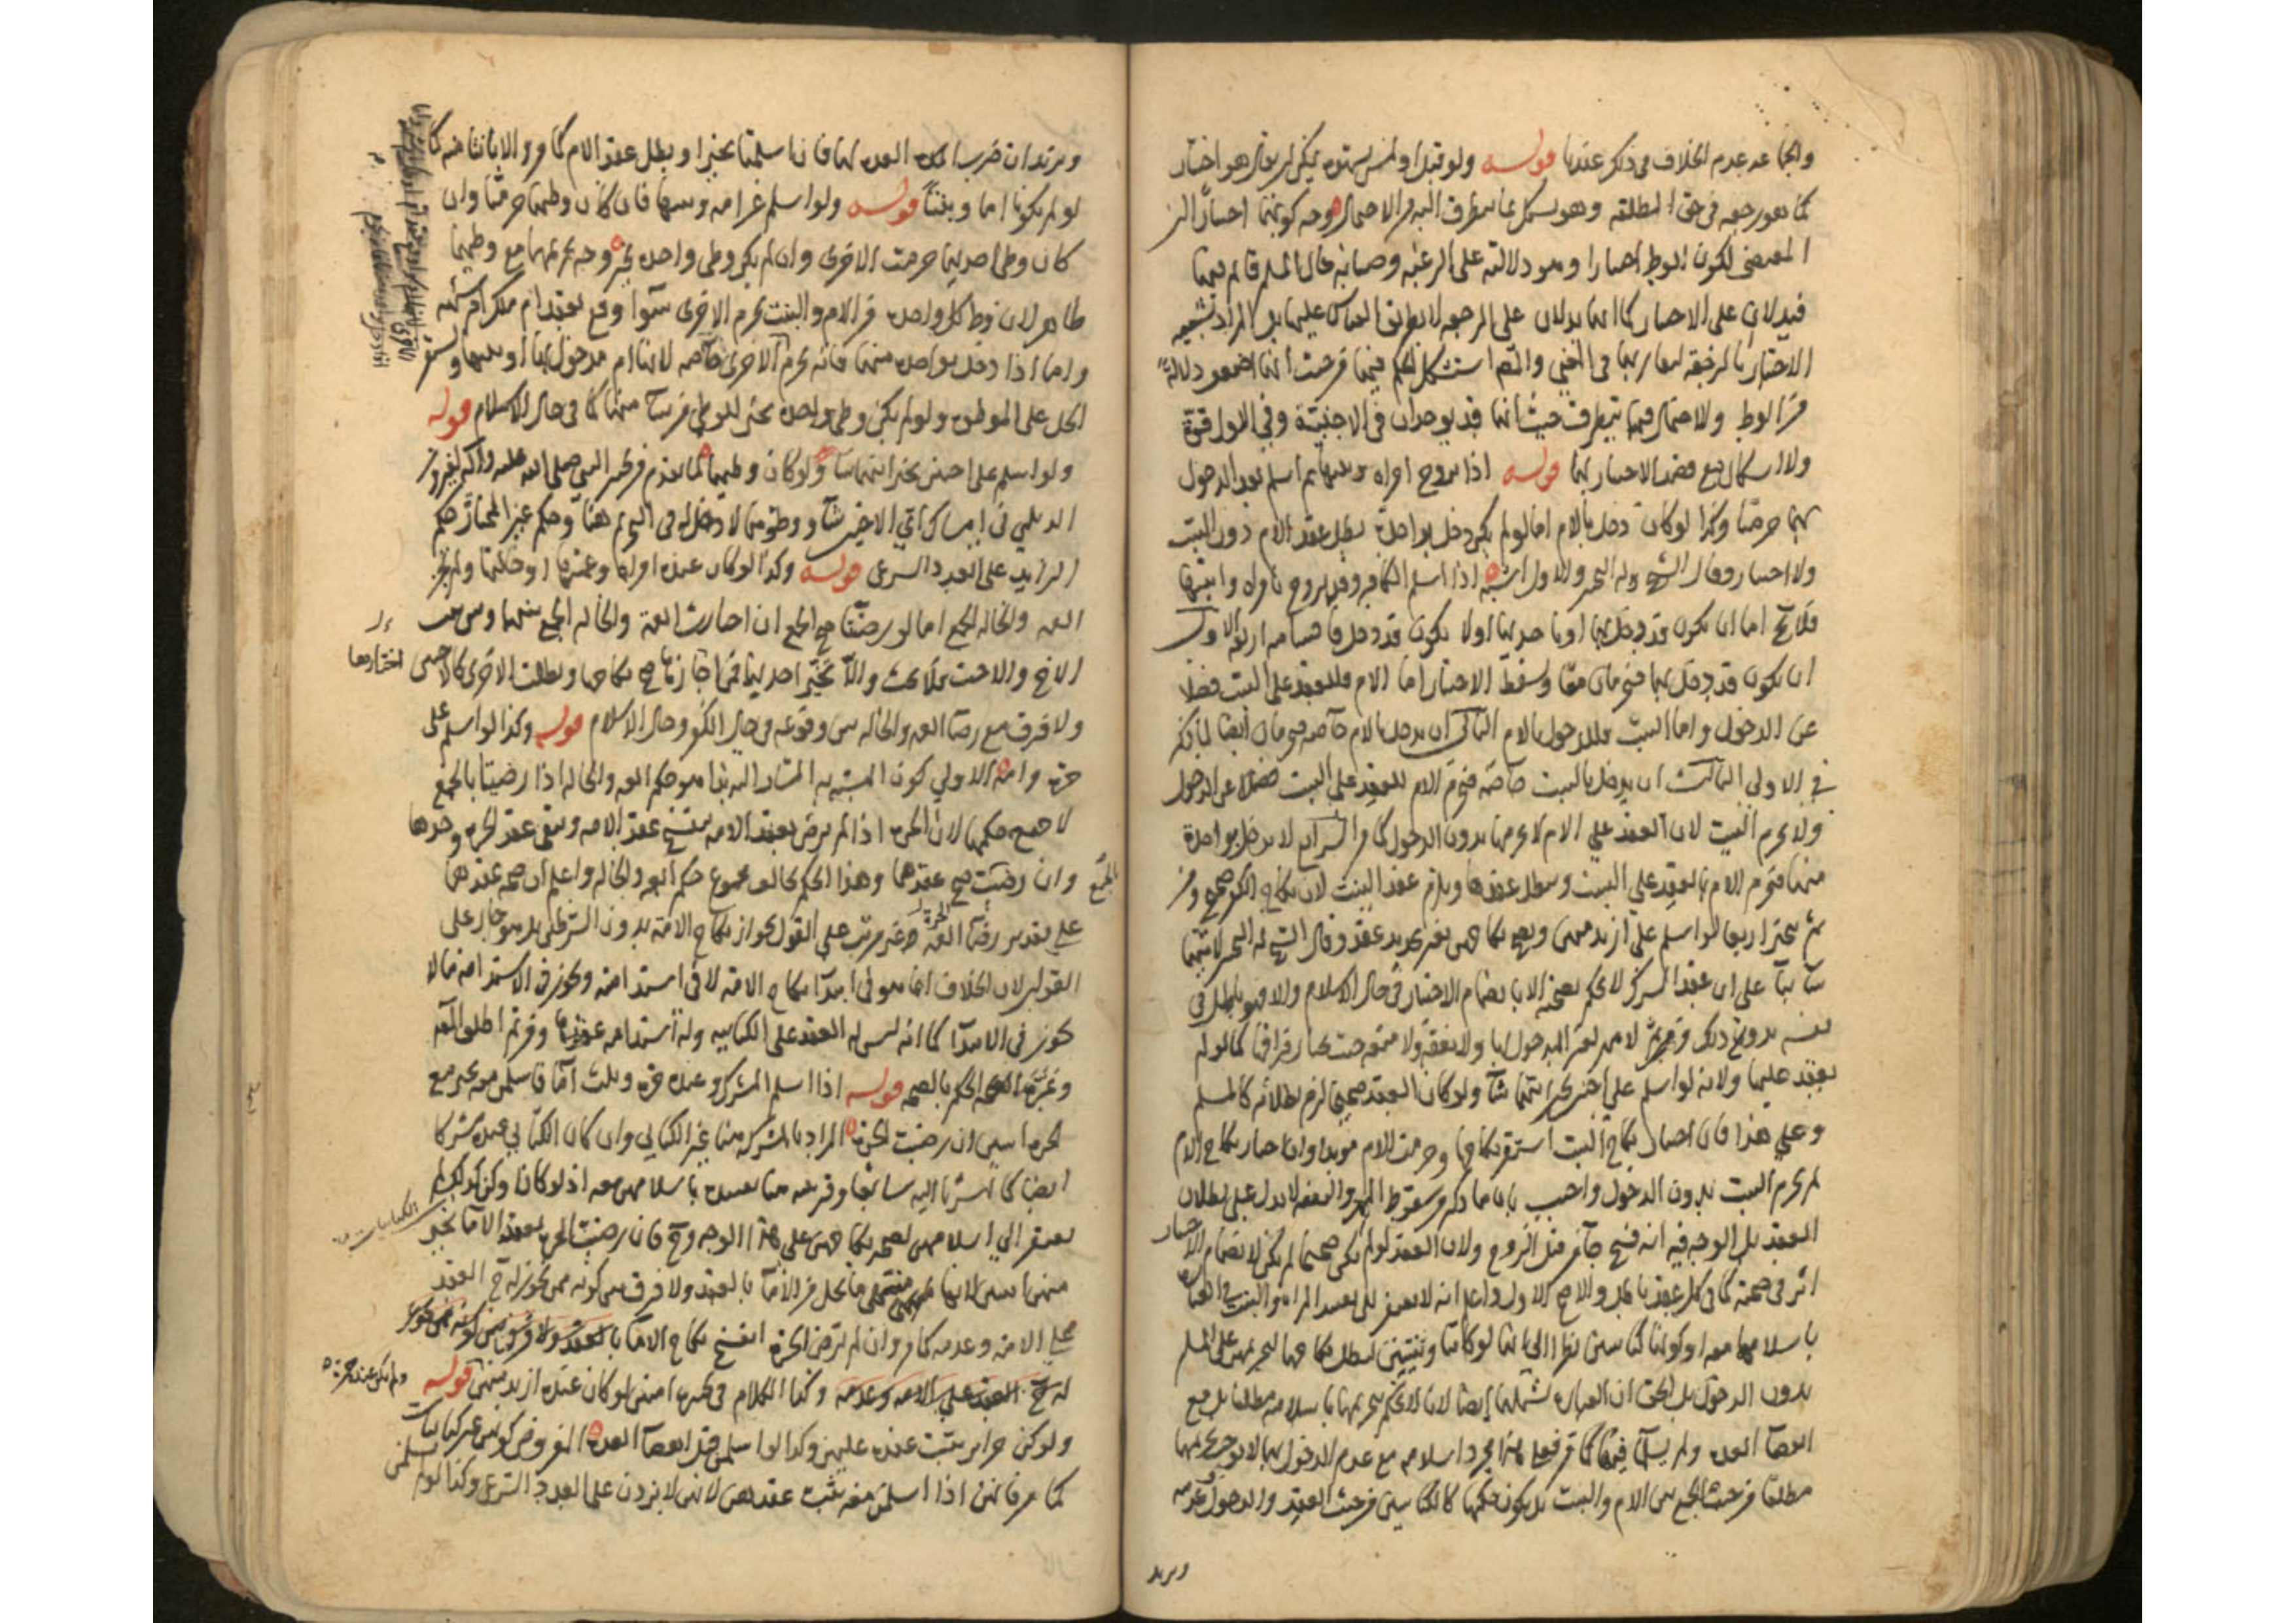 قوله ولو قبل او لمس بشهوة يمكن ان يقال هو اختيار
كما هو رجعة في حق المطلقة وهو يشكل بما يتطرق اليه من الاحتمال وجه كونهما اختيارا ان
المقتضي لكون الوطي اختيارا وهو دلالته على الرغبة وصيانة حال المسلم قائم فيهما
فيدلان على الاختيار كما انهما يدلان على الرجعة لا بطريق القياس عليها بل المراد تشبيه
الاختيار بالرجعة لتقاربهما في المعنى والمصنف استشكل الحكم فيهما من حيث انهما اضعف دلالة
من الوطي والاحتمال فيهما يتطرق حيث انهما قد يوجدان في الاجنبية وفي الاول قوة
ولا اشكال مع قصد الاختيار بهما قوله اذا تزوج امراة وبنتها ثم اسلم بعد الدخول
بهما حرمتا وكذا لو كان دخل بالام اما لو لم يكن دخل بواحدة بطل عقد الام دون البنت
ولا اختيار وقال الشيخ وله التخيير والاول اشبه اذا اسلم الكافر وقد تزوج بامراة وابنتها
فلا يخ اما ان يكون قد دخل بهما او باحديهما او لا يكون قد دخل فاقسامه اربعة الاول
ان يكون قد دخل بهما فتحرمان معا وسقط الاختيار اما الام فللعقد على البنت فضلا
عن الدخول واما البنت فللدخول بالام الثاني ان يدخل بالام خاصة فتحرمان ايضا لما ذكر
في الاولى الثالث ان يدخل بالبنت خاصة فتحرم الام للعقد على البنت فضلا عن الدخول
ولا تحرم البنت لان العقد على الام لا يحرمها بدون الدخول كما مر الرابع لا يدخل بواحدة
منهما فتحرم الام بالعقد على البنت وبطل عقدها ويلزم عقد البنت لان نكاح الكفر صحيح ومن
ثم تخير اربعا لو اسلم على ازيد منهن ويصح نكاحهن بغير تجديد عقد وقال الشيخ له التخيير لايتهما
شاء بناء على ان عقد الشرك لا يحكم بصحته الا بانضمام الاختيار في حال الاسلام والا فهو باطل في
نفسه بدون ذلك ومن ثم لا مهر لغير المدخول بها ولا نفقة ولا متعة حيث يختار فراقها كما لو لم
يعقد عليها ولانه لو اسلم على اختين تخير ايتهما شاء ولو كان العقد صحيحا لزم بطلانه كالمسلم
وعلى هذا فان اختار نكاح البنت استقر نكاحها وحرمت الام مؤبدا وان اختار نكاح الام
لم تحرم البنت بدون الدخول واجيب بان ما ذكر من سقوط المهر والنفقة لا يدل على بطلان
العقد بل الوجه فيه انه فسخ جاء من قبل الزوج ولان العقد لو لم يكن صحيحا لم يكن لانضمام الاختيار
اثر في صحته كما في كل عقد باطل والاصح الاول واعلم انه لا يفتقر الى تقييد المراة والبنت في العبارة
باسلامهما معه او كونهما كتابيتين نظرا الى انهما لو كانتا وثنيتين لبطل نكاحهما لتحريمهن على المسلم
بدون الدخول بل الحق ان العبارة تشملهما ايضا لانا لا نحكم بتحريمهما باسلامه مطلقا بل مع
انقضاء العدة ولم يسلما فيها كما مر فمجرد اسلامه مع عدم الدخول بهما لا يوجب تحريمهما
مطلقا من حيث الجمع بين الام والبنت بل يكون حكمهما كالكتابيتين من حيث العقد والدخول وعدمه
ويزيد
ويزيد ان ضرب العدة لهما فان اسلمتا تخيرا وبطل عقد الام كما مر والا بانتا منه كما
لو لم يكونا اما وبنتا قوله ولو اسلم عن امة وبنتها فان كان وطئهما حرمتا وان
كان وطئ احديهما حرمت الاخرى وان لم يكن وطئ واحدة تخير وجه تحريمهما مع وطئهما
ظاهر لان وطي كل واحدة من الام والبنت يحرم الاخرى سواء وقع بعقد ام ملك ام شبهة
واما اذا دخل بواحدة منهما فانه يحرم الاخرى خاصة لانها ام مدخول بها او بنتها ويستقر
الحل على الموطوءة ولو لم يكن وطئ واحدة تخير للوطي من شاء منهما كما في حال الاسلام قوله
ولو اسلم على اختين تخير ايتهما شاء ولو كان وطئهما لما تقدم من تخيير النبي صلى الله عليه وآله لفيروز
الديلمي في امساك اي الاختين شاء ووطؤهما لا دخل له في التحريم هنا وحكم غير المختارة حكم
الزايد على العدد الشرعي قوله وكذا لو كان عنده امراة وعمتها او خالتها ولم تجز
العمة والخالة الجمع اما لو رضيتا صح الجمع ان اختارت العمة والخالة الجمع بينهما وبين بنت
الاخ والاخت فلا بحث والا تخير احديهما فمن اختارها صح نكاحها وبطلت الاخرى كالاختين
ولا فرق مع رضا العمة والخالة بين وقوعه في حال الكفر وحال الاسلام قوله وكذا لو اسلم على
حرة وامة الاولى كون المشبه به المشار اليه بذا هو حكم العمة والخالة اذا رضيتا بالجمع
لا جميع حكمهما لان الحرة اذا لم ترض بعقد الامة ينفسخ عقد الامة ويبقى عقد الحرة وحدها
وان رضيت صح عقدهما وهذا الحكم يخالف مجموع حكم العمة والخالة واعلم ان صحة عقدهما
على تقدير رضا الحرة غير مرتب على القول بجواز نكاح الامة بدون الشرطين بل هو جار على
القولين لان الخلاف انما هو في ابتداء نكاح الامة لا في استدامته ويجوز في الاستدامة ما لا
يجوز في الابتداء كما انه ليس له العقد على الكتابية وله استدامة عقدها ومن ثم اطلق المصنف
وغيره الحكم بالصحة قوله اذا اسلم المشرك وعنده حرة وثلث اماء فاسلمن معه تخير مع
الحرة اثنتين ان رضيت الحرة المراد بالمشرك هنا غير الكتابي وان كان الكتابي عنده مشركا
ايضا كما اشرنا اليه سابقا وقرينته هنا تقييده باسلامهن معه اذ لو كانا وكن كذلك لم
يفتقر الى اسلامهن لصحة نكاحهن على هذا الوجه وح فان رضيت الحرة بعقد الاماء تخير
منهن اثنتين لانهما منتهى ما يحل من الاماء بالعقد ولا فرق بين كونه ممن يجوز له ح العقد
على الامة وعدمه كما مر وان لم ترض الحرة انفسخ نكاح الاماء
وكذا الكلام في تخييره اثنتين لو كان عنده ازيد منهن ولم تكن عنده حرة قوله
ولو كن حراير ثبت عقده عليهن وكذا لو اسلمن قبل انقضاء العدة المفروض كونهن غير كتابيات
كما مر فانهن اذا اسلمن معه يثبت عقدهن لانهن لا يزدن على العدد الشرعي وكذا لو لم يسلمن